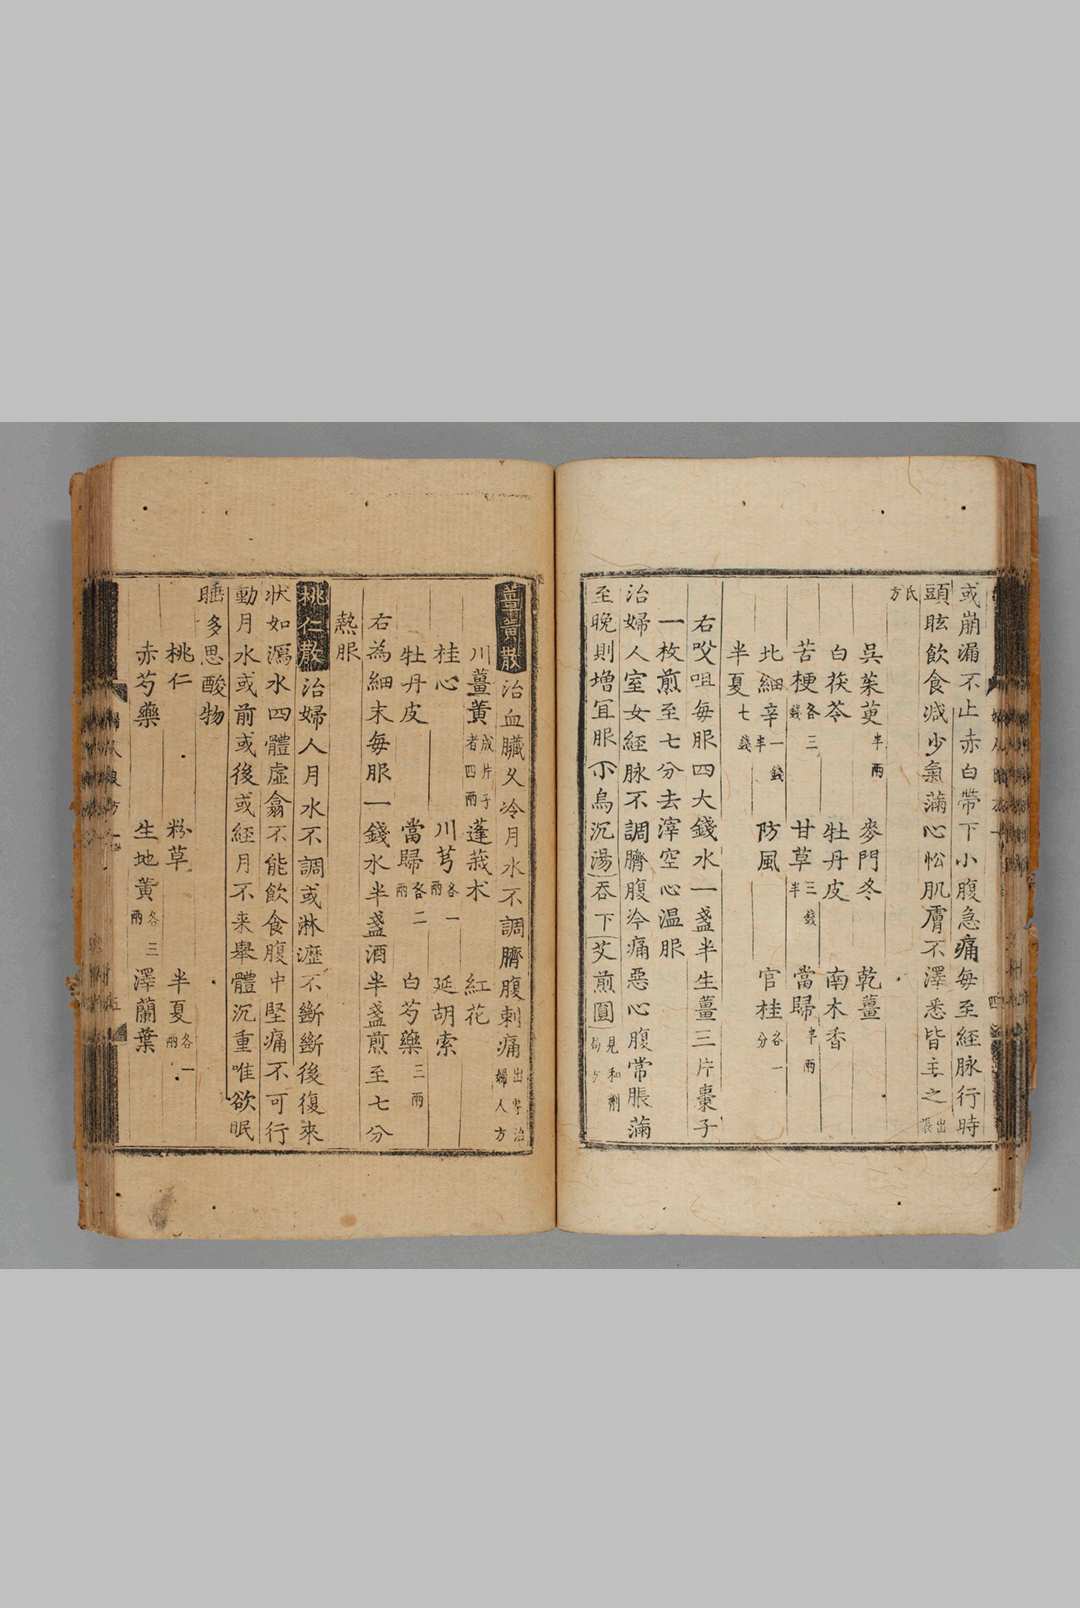 或崩漏不止赤白帶下小腹急痛每至經脉行時
頭眩飲食減少氣滿心忪肌膚不澤悉皆主之出張
氏方
吳茱萸半兩 麥門冬 乾薑
白茯苓 牡丹皮 南木香
苦梗各三錢 甘草三錢半 當歸半兩
北細辛一錢半 防風 官桂各一分
半夏七錢
右㕮咀每服四大錢水一盞半生薑三片棗子
一枚煎至七分去滓空心温服
治婦人室女經脉不調臍腹冷痛惡心腹常脹滿
至晚則增宜服小烏沉湯吞下艾煎圓見和劑局方
薑黃散治血臟久冷月水不調臍腹刺痛出專治婦人方
川薑黃成片子者四兩 蓬莪朮 紅花
桂心 川芎各一兩 延胡索
牡丹皮 當歸各二兩 白芍藥三兩
右為細末每服一錢水半盞酒半盞煎至七分
熱服
桃仁散治婦人月水不調或淋瀝不斷斷後復來
狀如瀉水四體虛翕不能飲食腹中堅痛不可行
動月水或前或後或經月不來舉體沉重唯欲眠
睡多思酸物
桃仁 粉草 半夏各一兩
赤芍藥 生地黃各三兩 澤蘭葉